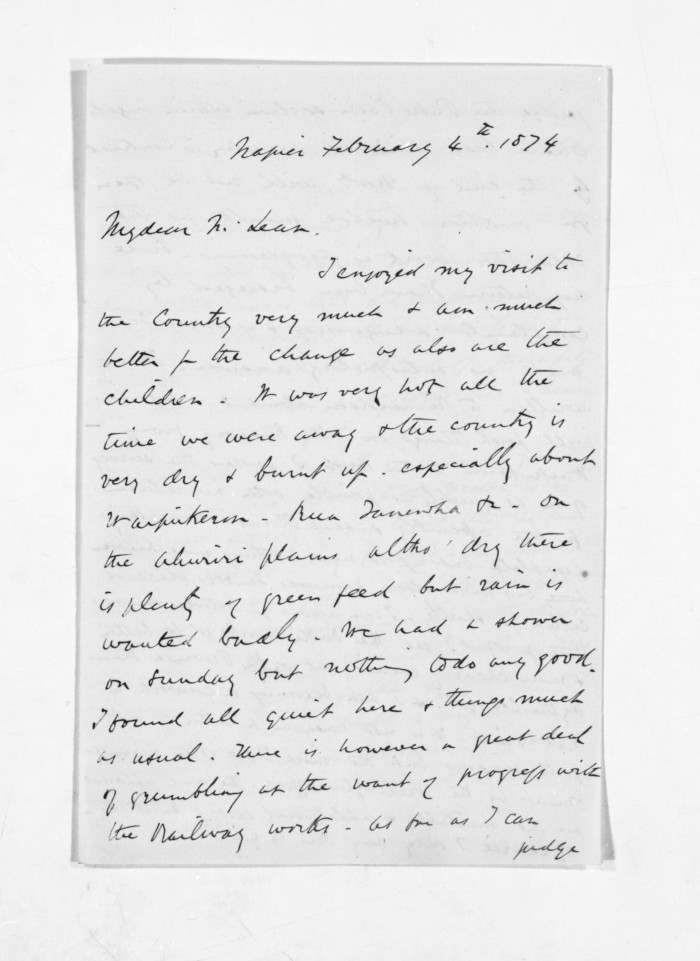 Napier February 4th. 1874
My dear Mc Lean.
I enjoyed my visit to
the Country very much & am much
better for the change as also are the
children - It was very hot all the
time we were away & the country is
very dry & burnt up - especially about
Waipukurau - Rua Taniwha &c - on
the Ahuriri plains altho' dry there
is plenty of green feed but rain is
wanted badly - We had a shower
on Sunday but nothing to do any good -
I found all quiet here & things much
as usual. There is however a great deal
of grumbling at the want of progress with
the Railway works - as far as I can
judge